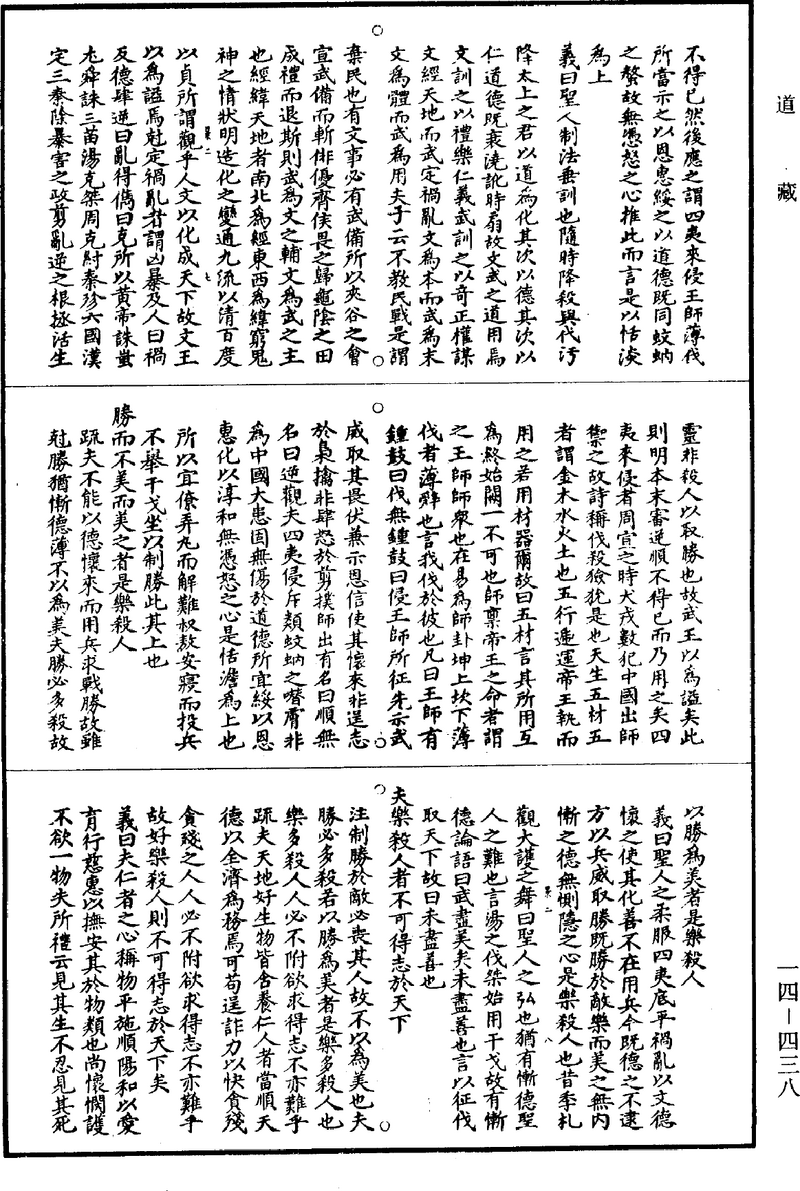 道藏
不得已然後應之謂四夷來侵王師薄伐
所當示之以恩惠綏之以道德既同蚊蚋
之螫故無憑怒之心推此而言是以恬淡
為上
義曰聖人制法垂訓也隨時降殺與代汚
降太上之君以道為化其次以德其次以
仁道德既衰澆訛時扇故文武之道用焉
文訓之以禮樂仁義武訓之以奇正權謀
文經天地而武定禍亂文為本而武為末
文為體而武為用夫子云不教民戰是謂
棄民也有文事必有武備所以夾谷之會
宣武備而斬俳優齊侯畏之歸龜陰之田
成禮而退斯則武為文之輔文為武之主
也經緯天地者南北為經東西為緯窮鬼
神之情狀明造化之變通九流以清百度
以貞所謂觀乎人文以化成天下故文王
以為謚焉尅定禍亂者謂凶暴及人曰禍
反德肆逆曰亂得儁曰克所以黃帝誅蚩
尤舜誅三苗湯克桀周克紂秦殄六國漢
定三秦除暴害之政剪亂逆之根拯活生
靈非殺人以取勝也故武王以為謚矣此
則明本末審逆順不得已而乃用之矣四
夷來侵者周宣之時犬戎數犯中國出師
禦之故詩稱伐玁狁是也天生五材五
者謂金木水火土也五行遞運帝王執而
用之若用材器爾故曰五材言其所用互
為終始闕一不可也師稟帝王之命者謂
之王師師衆也在易為師卦坤上坎下薄
伐者薄辭也言我伐於彼也凡曰王師有
鍾鼓曰伐無鍾鼓曰侵王師所征先示武
威取其畏伏兼示恩信使其懷來非逞志
於梟擒非肆怒於剪撲師出有名曰順無
名曰逆觀夫四夷侵斥類蚊蚋之噆膚非
為中國大患固無傷於道德所宜綏以恩
惠化以淳和無憑怒之心是恬澹為上也
所以宜僚弄丸而解難叔敖安寢而投兵
不舉干戈坐以制勝此其上也
勝而不美而美之者是樂殺人
疏夫不能以德懷來而用兵求戰勝故雖
尅勝猶慚德薄不以為美夫勝必多殺故
以勝為美者是樂殺人
義曰聖人之柔服四夷底平禍亂以文德
懷之使其化善不在用兵今既德之不逮
方以兵威取勝既勝於敵樂而美之無内
慚之德無惻隱之心是樂殺人也昔季札
觀大護之舞曰聖人之弘也猶有慚德聖
人之難也言湯之伐桀始用干戈故有慚
德論語曰武盡美矣未盡善也言以征伐
取天下故曰未盡善也
夫樂殺人者不可得志於天下
注制勝於敵必喪其人故不以為美也夫
勝必多殺若以勝為美者是樂多殺人也
樂多殺人人必不附欲求得志不亦難乎
疏夫天地好生物皆含養仁人者當順天
德以全濟為務焉可苟逞詐力以快貪殘
貪殘之人人必不附欲求得志不亦難乎
故好樂殺人則不可得志於天下矣
義曰夫仁者之心稱物平施順陽和以愛
育行慈惠以撫安其於物類也尚懷憫護
不欲一物夫所禮云見其生不忍見其死
一四—四三八